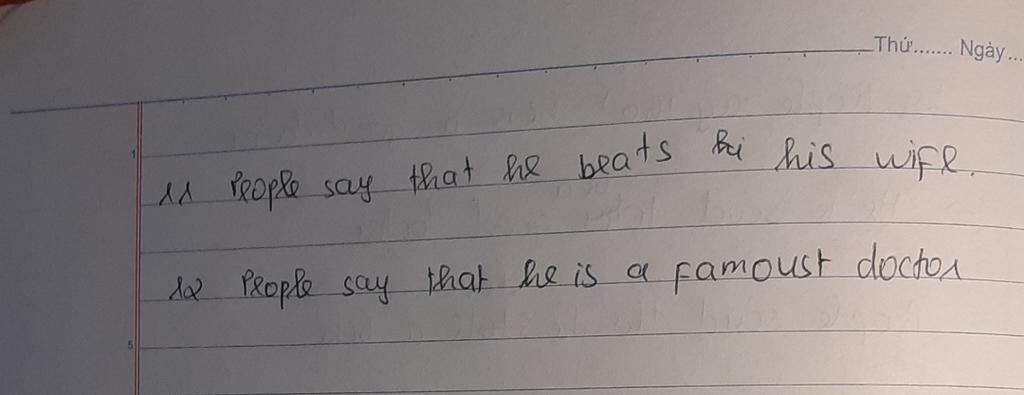 Thứ....... Ngày...
1
11 People say that he beats hi his wife.
12 People say that he is a famoust doctor
5